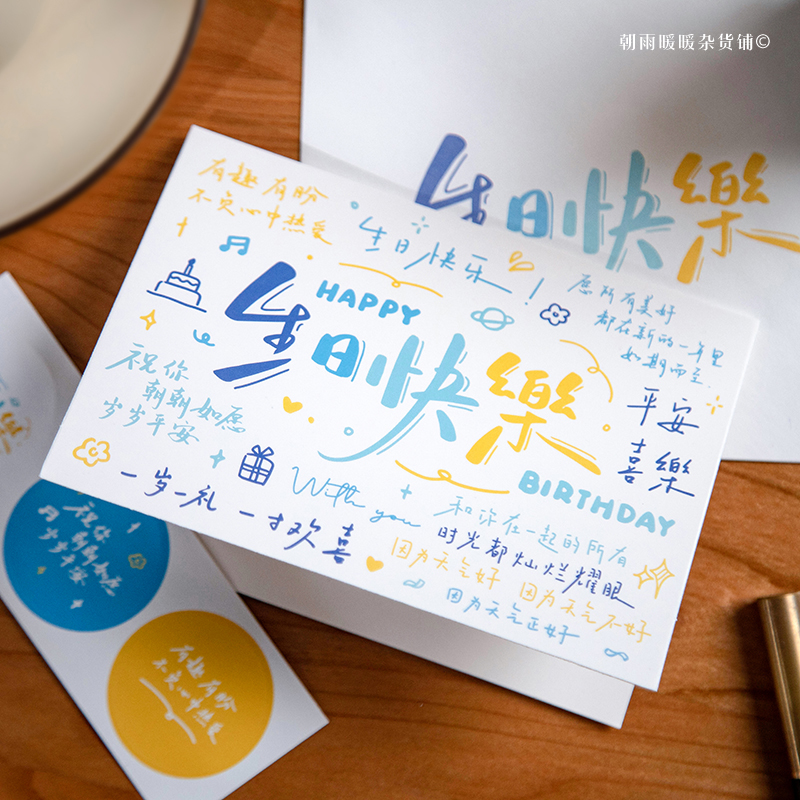 朝雨暖暖杂货铺©
生日快樂
有趣 有盼
不负心中热爱
生日快乐!
HAPPY
生日快樂
BIRTHDAY
愿所有美好
都在新的一年里
如期而至.
平安
喜樂
祝你
朝朝如愿
岁岁平安
一岁一礼 一寸欢喜
With you
和你在一起的所有
时光都灿烂耀眼
因为天气好 因为天气不好
因为天气正好
祝你
朝朝如愿
岁岁平安
有趣 有盼
不负心中热爱